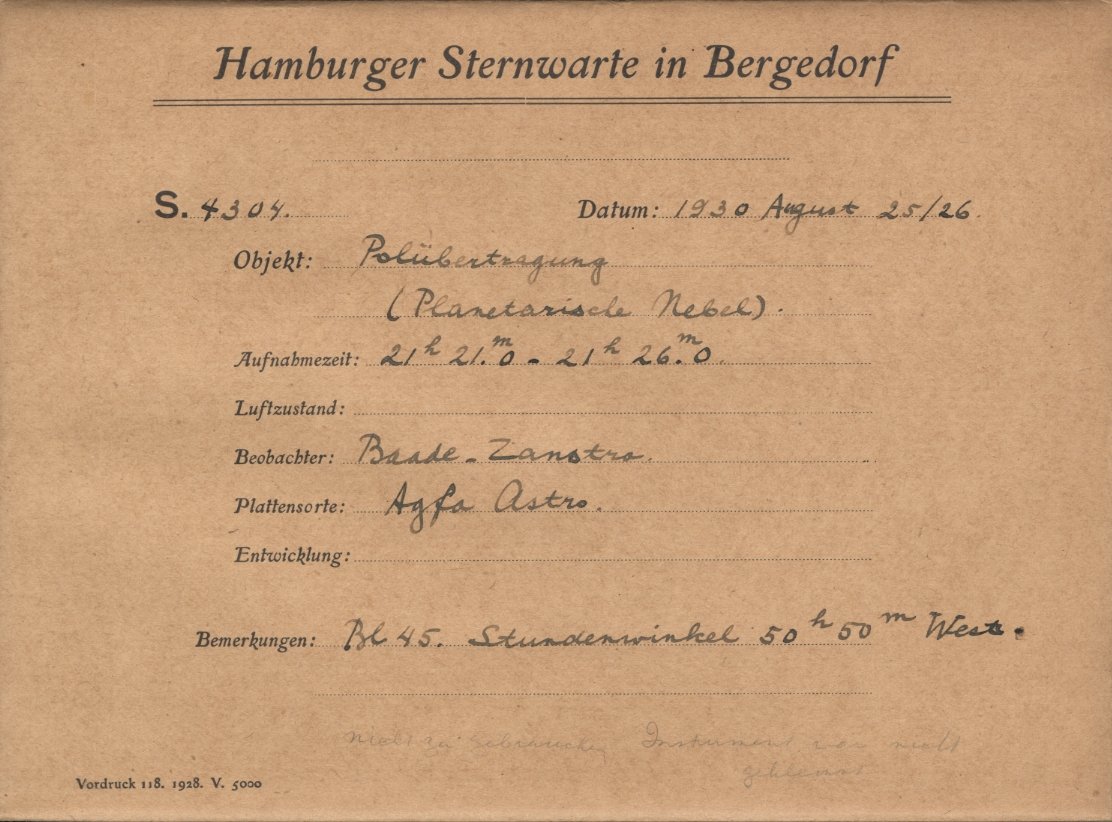 Hamburger Sternwarte in Bergedorf
S. 4304. Datum: 1930 August 25/26.
Objekt: Polübertragung
(Planetarische Nebel).
Aufnahmezeit: 21h 21.m0 - 21h 26.m0.
Luftzustand:
Beobachter: Baade - Zanstra.
Plattensorte: Agfa Astro.
Entwicklung:
Bemerkungen: Bl 45. Stundenwinkel 50h 50m West.
nicht zu gebrauchen, Instrument war nicht
geklemmt
Vordruck 118. 1928. V. 5000